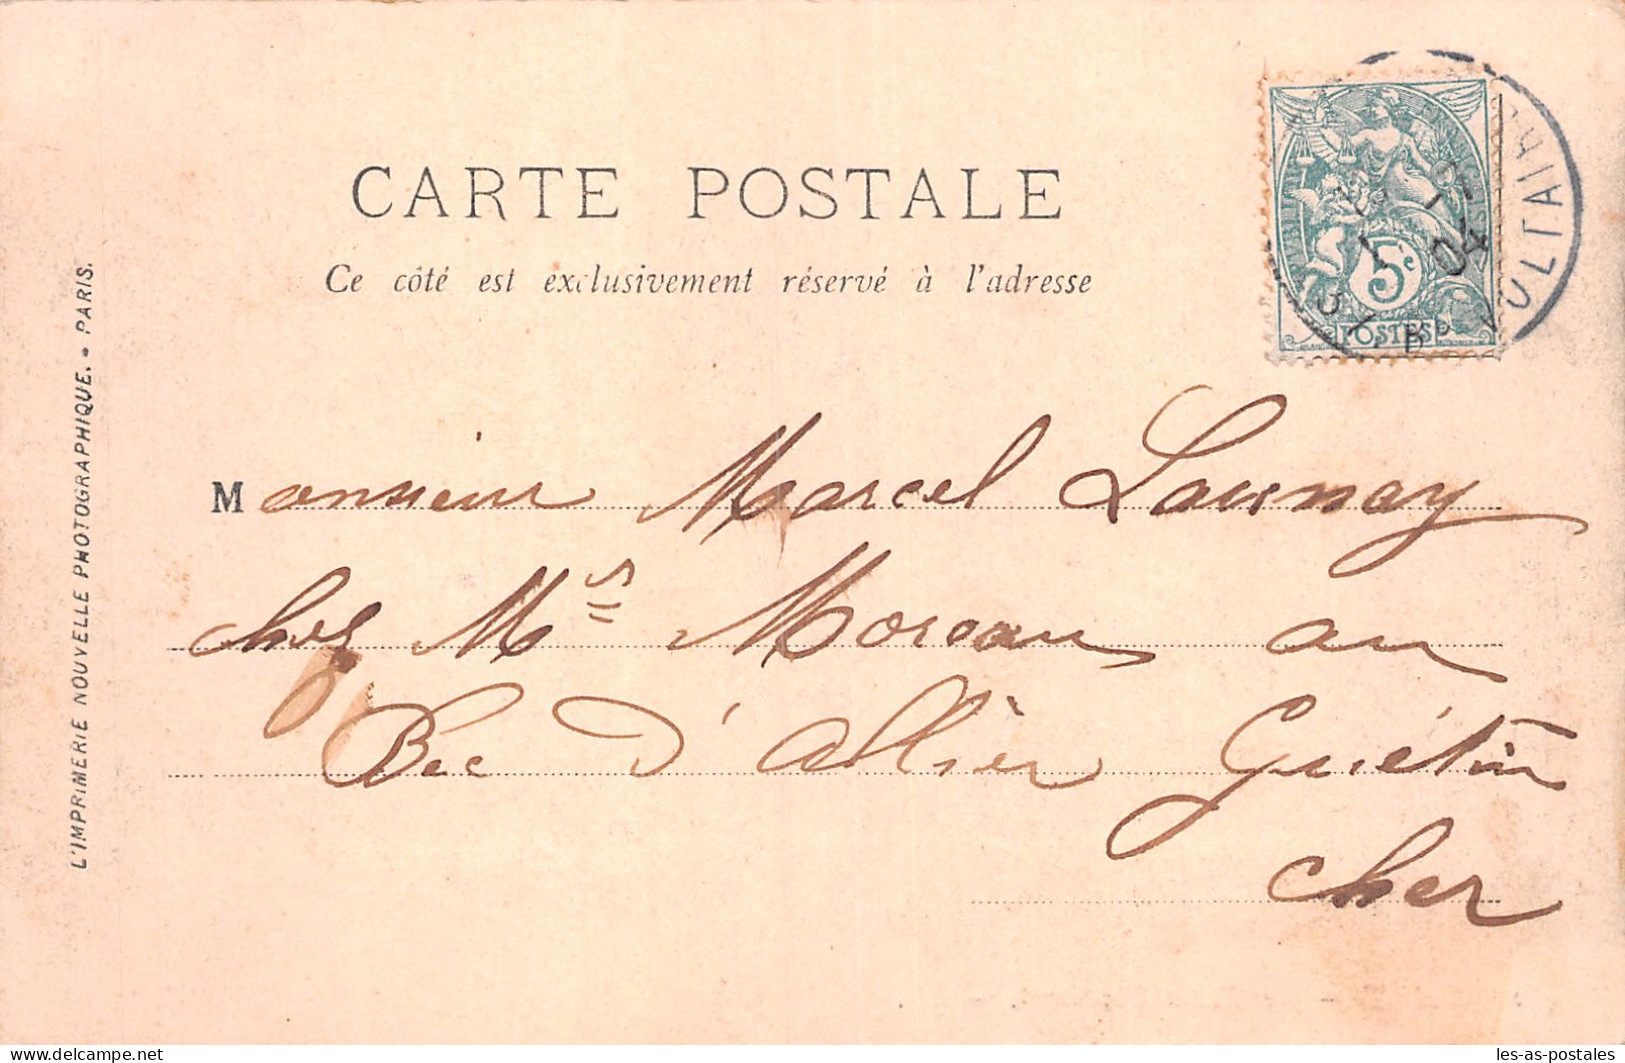 CARTE POSTALE
Ce côté est exclusivement réservé à l'adresse
5c
POSTES
04
Bᴰ VOLTAIRE
Monsieur Marcel Launay
chez Mr Moreau au
Bec d'allier Guétin
Cher
L'IMPRIMERIE NOUVELLE PHOTOGRAPHIQUE. - PARIS.
website: delcampe.net
les-as-postales